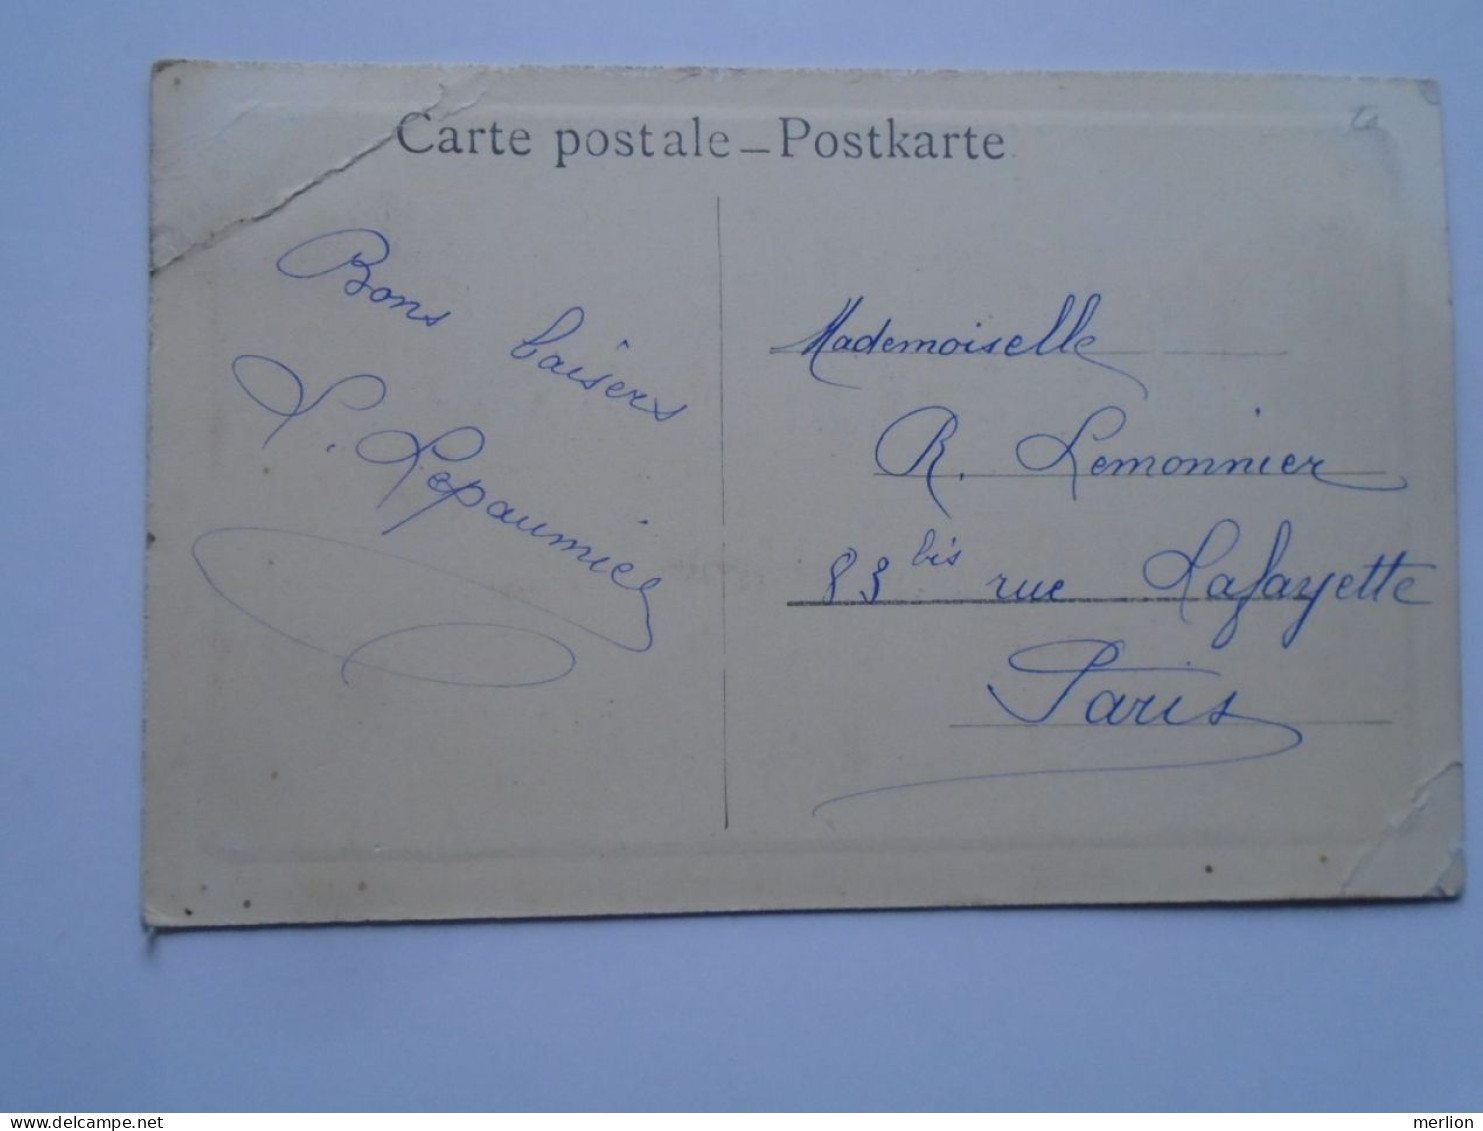 Carte postale – Postkarte
Bons baisers
L. Lepaumier
Mademoiselle
R. Lemonnier
83 bis rue Lafayette
Paris
delcampe.net
merlion